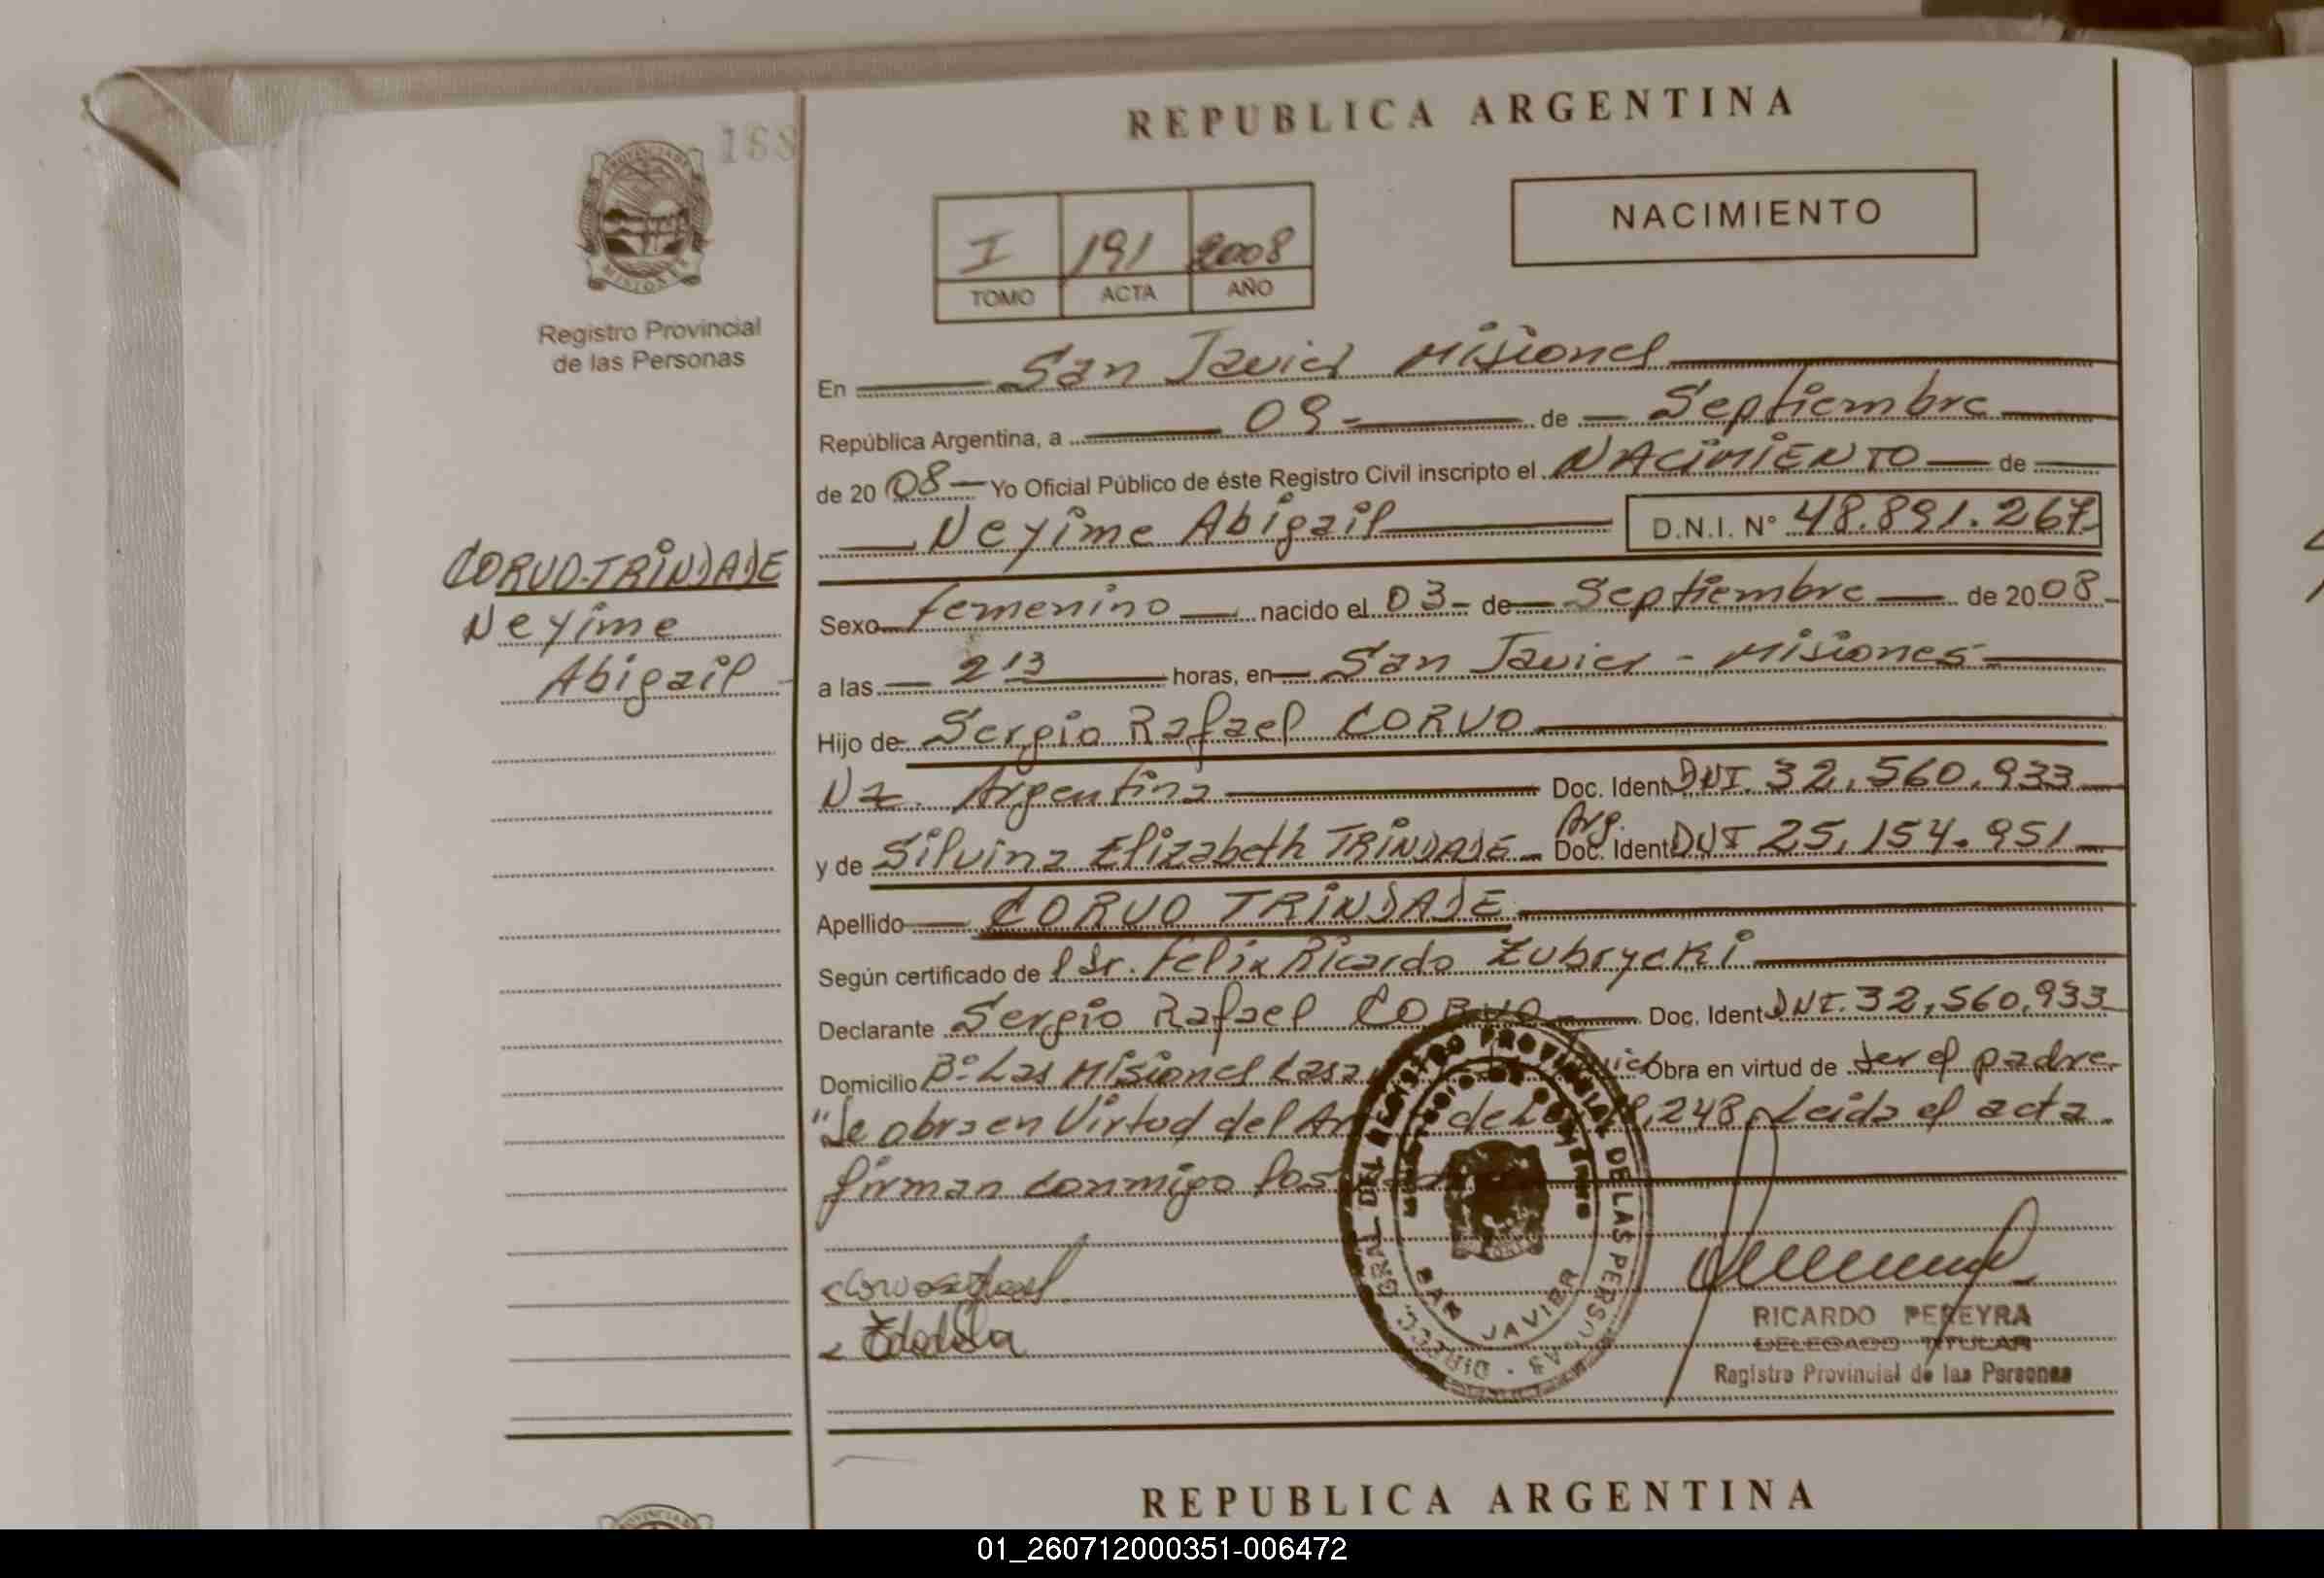 188
REPUBLICA ARGENTINA
PROVINCIA DE
MISIONES
Registro Provincial
de las Personas
I 191 2008
TOMO ACTA AÑO
NACIMIENTO
En San Javier Misiones
República Argentina, a 09 de Septiembre
de 2008 Yo Oficial Público de éste Registro Civil inscripto el NACIMIENTO de
Neyime Abigail D.N.I. Nº 48.891.267
CORVO-TRINDADE
Neyime
Abigail
Sexo femenino nacido el 03 de Septiembre de 2008
a las 2 13 horas, en San Javier - Misiones
Hijo de Sergio Rafael CORVO
Na. Argentina Doc. Ident DNI. 32.560.933
y de Silvina Elizabeth TRINDADE Arg. Doc. Ident DNI 25.154.951
Apellido CORVO TRINDADE
Según certificado de l Dr. Felix Ricardo Zubrycki
Declarante Sergio Rafael CORVO Doc. Ident DNI. 32.560.933
Domicilio Bº Las Misiones Casa Obra en virtud de ser el padre.
"Se obra en Virtud del de 248, Leida el acta.
firman conmigo los
DIRECC. GRAL. DEL REGISTRO PROVINCIAL DE LAS PERSONAS
SAN JAVIER
RICARDO PEREYRA
DELEGADO TITULAR
Registro Provincial de las Personas
REPUBLICA ARGENTINA
01_260712000351-006472